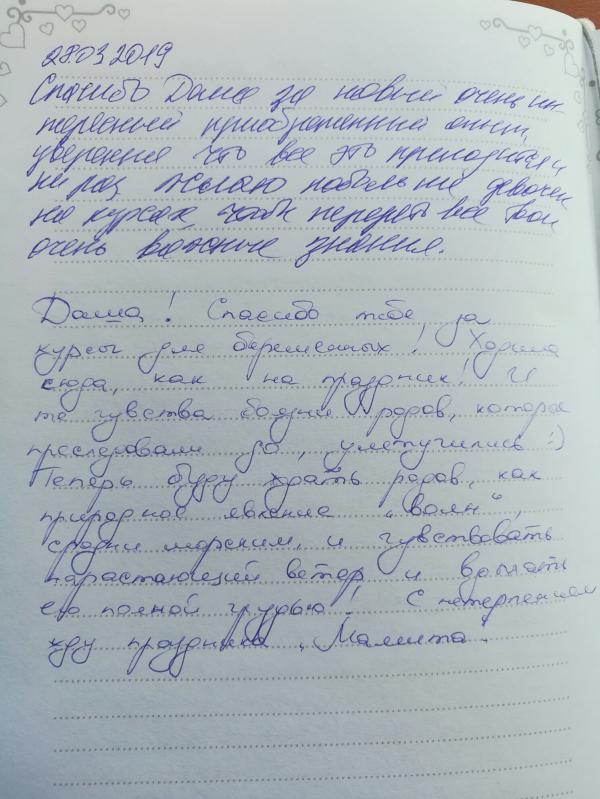 28.03.2019
Спасибо Даша за новый очень ин-
тересный приобретенный опыт,
уверенна что все это пригодится и
не раз. Желаю побольше девочек
на курсах, чтобы передать все твои
очень важные знания.
Даша! Спасибо тебе за
курсы для беременных! Ходила
сюда, как на праздник! И
те чувства боязни родов, которые
преследовали до, улетучились :)
Теперь буду ждать родов, как
природное явление „волн“,
сродни морским, и чувствовать
нарастающий ветер и вдыхать
его полной грудью! С нетерпением
жду праздника